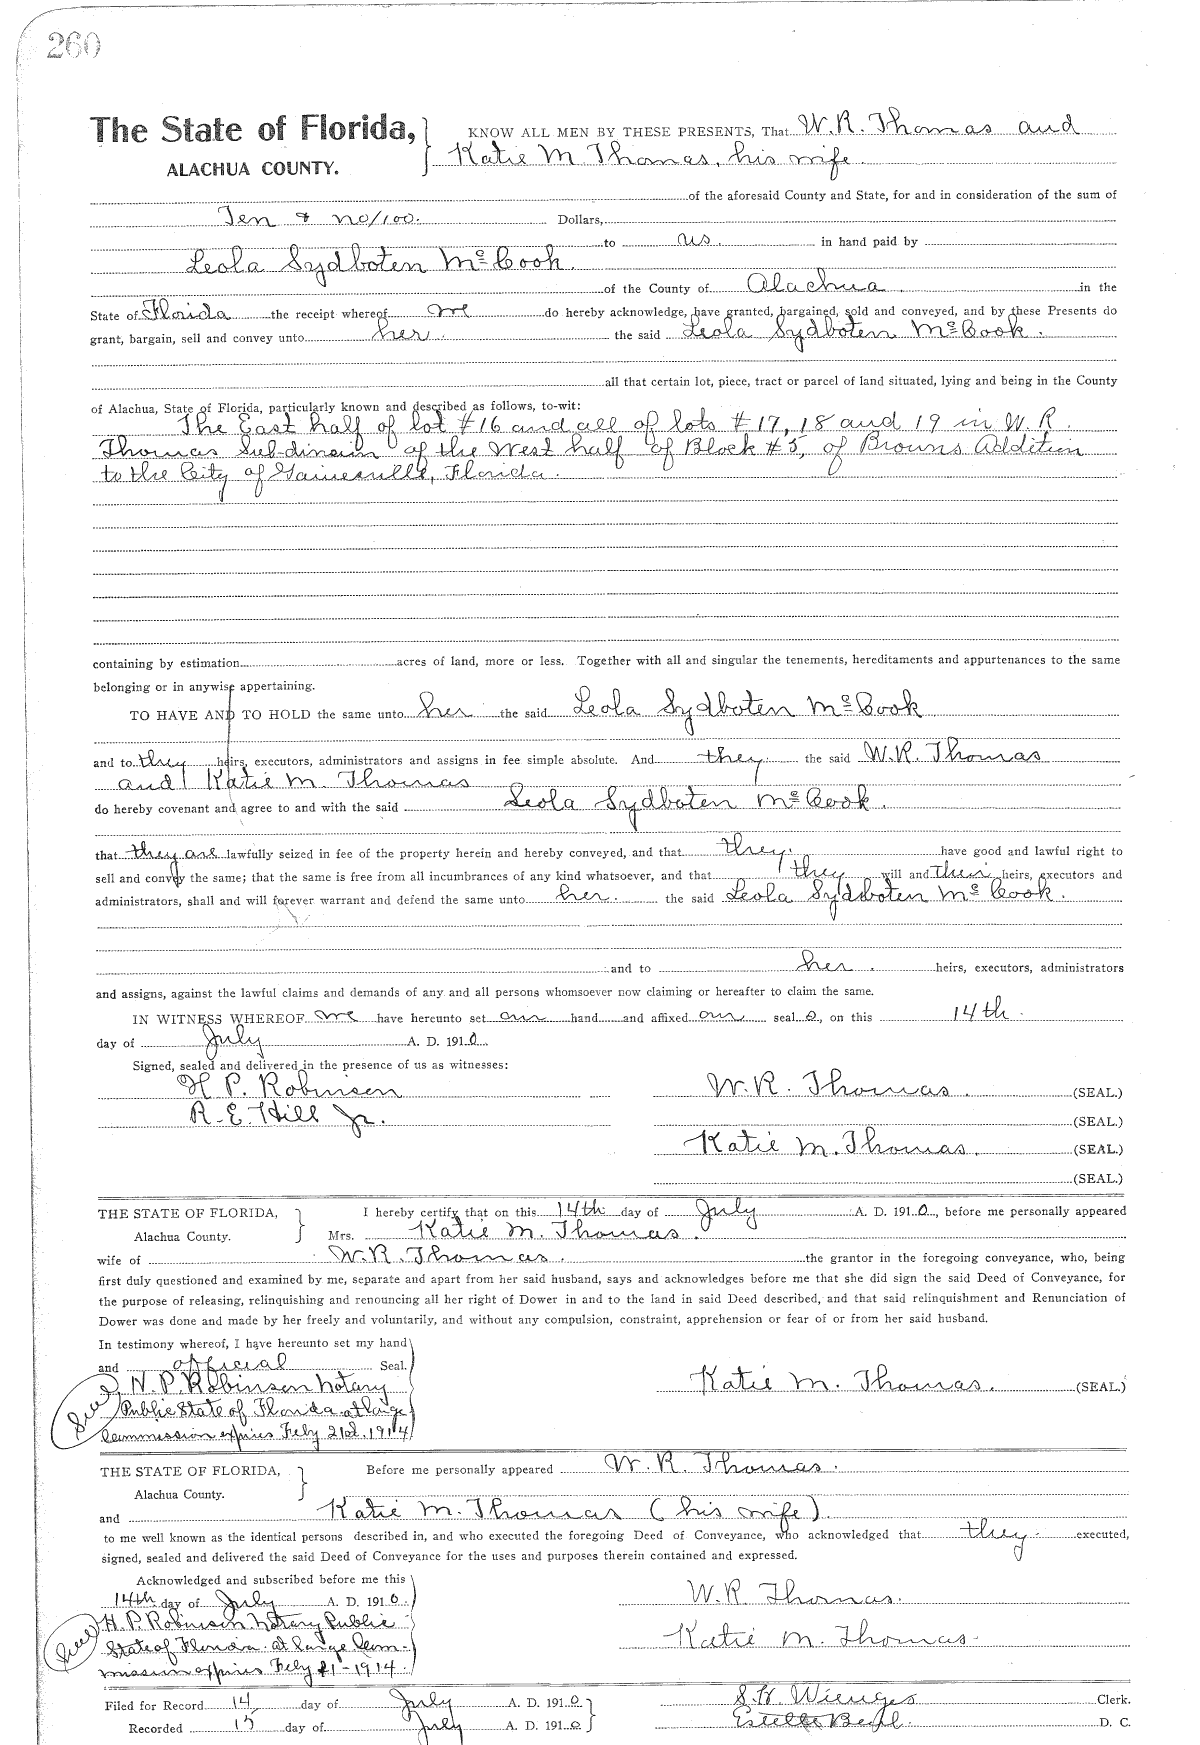 260
The State of Florida, KNOW ALL MEN BY THESE PRESENTS, That W. R. Thomas and
ALACHUA COUNTY. Katie M Thomas, his wife.
of the aforesaid County and State, for and in consideration of the sum of
Ten & no/100. Dollars,
to us in hand paid by
Leola Sydboten McCook
of the County of Alachua in the
State of Florida the receipt whereof we do hereby acknowledge, have granted, bargained, sold and conveyed, and by these Presents do
grant, bargain, sell and convey unto her the said Leola Sydboten McCook.
all that certain lot, piece, tract or parcel of land situated, lying and being in the County
of Alachua, State of Florida, particularly known and described as follows, to-wit:
The East half of lot #16 and all of lots #17, 18 and 19 in W. R.
Thomas Sub-division of the West half of Block #5, of Browns Addition
to the City of Gainesville, Florida.
containing by estimation acres of land, more or less. Together with all and singular the tenements, hereditaments and appurtenances to the same
belonging or in anywise appertaining.
TO HAVE AND TO HOLD the same unto her the said Leola Sydboten McCook
and to they heirs, executors, administrators and assigns in fee simple absolute. And they the said W. R. Thomas
and Katie M. Thomas
do hereby covenant and agree to and with the said Leola Sydboten McCook.
that they are lawfully seized in fee of the property herein and hereby conveyed, and that they have good and lawful right to
sell and convey the same; that the same is free from all incumbrances of any kind whatsoever, and that they will and their heirs, executors and
administrators, shall and will forever warrant and defend the same unto her. the said Leola Sydboten McCook.
and to her. heirs, executors, administrators
and assigns, against the lawful claims and demands of any and all persons whomsoever now claiming or hereafter to claim the same.
IN WITNESS WHEREOF we have hereunto set our hand and affixed our seal s, on this 14th
day of July A. D. 1910.
Signed, sealed and delivered in the presence of us as witnesses:
H P. Robinson W. R. Thomas. (SEAL.)
R. E. Hill Jr. (SEAL.)
Katie M. Thomas. (SEAL.)
(SEAL.)
THE STATE OF FLORIDA, I hereby certify that on this 14th day of July A. D. 1910, before me personally appeared
Alachua County. Mrs. Katie M. Thomas.
wife of W. R. Thomas. the grantor in the foregoing conveyance, who, being
first duly questioned and examined by me, separate and apart from her said husband, says and acknowledges before me that she did sign the said Deed of Conveyance, for
the purpose of releasing, relinquishing and renouncing all her right of Dower in and to the land in said Deed described, and that said relinquishment and Renunciation of
Dower was done and made by her freely and voluntarily, and without any compulsion, constraint, apprehension or fear of or from her said husband.
In testimony whereof, I have hereunto set my hand
and official Seal.
H. P. Robinson Notary Katie M. Thomas. (SEAL.)
Seal Public State of Florida at large
Commission expires Feby 21st, 1914
THE STATE OF FLORIDA, Before me personally appeared W. R. Thomas.
Alachua County.
and Katie M. Thomas (his wife)
to me well known as the identical persons described in, and who executed the foregoing Deed of Conveyance, who acknowledged that they executed,
signed, sealed and delivered the said Deed of Conveyance for the uses and purposes therein contained and expressed.
Acknowledged and subscribed before me this
14th day of July A. D. 1910. W. R. Thomas.
H. P. Robinson Notary Public
Seal State of Florida at large Com- Katie M. Thomas.
mission expires Feby 21-1914.
Filed for Record 14 day of July A. D. 1910 S. H. Wienges Clerk.
Recorded 15 day of July A. D. 1910 Estelle D. C.